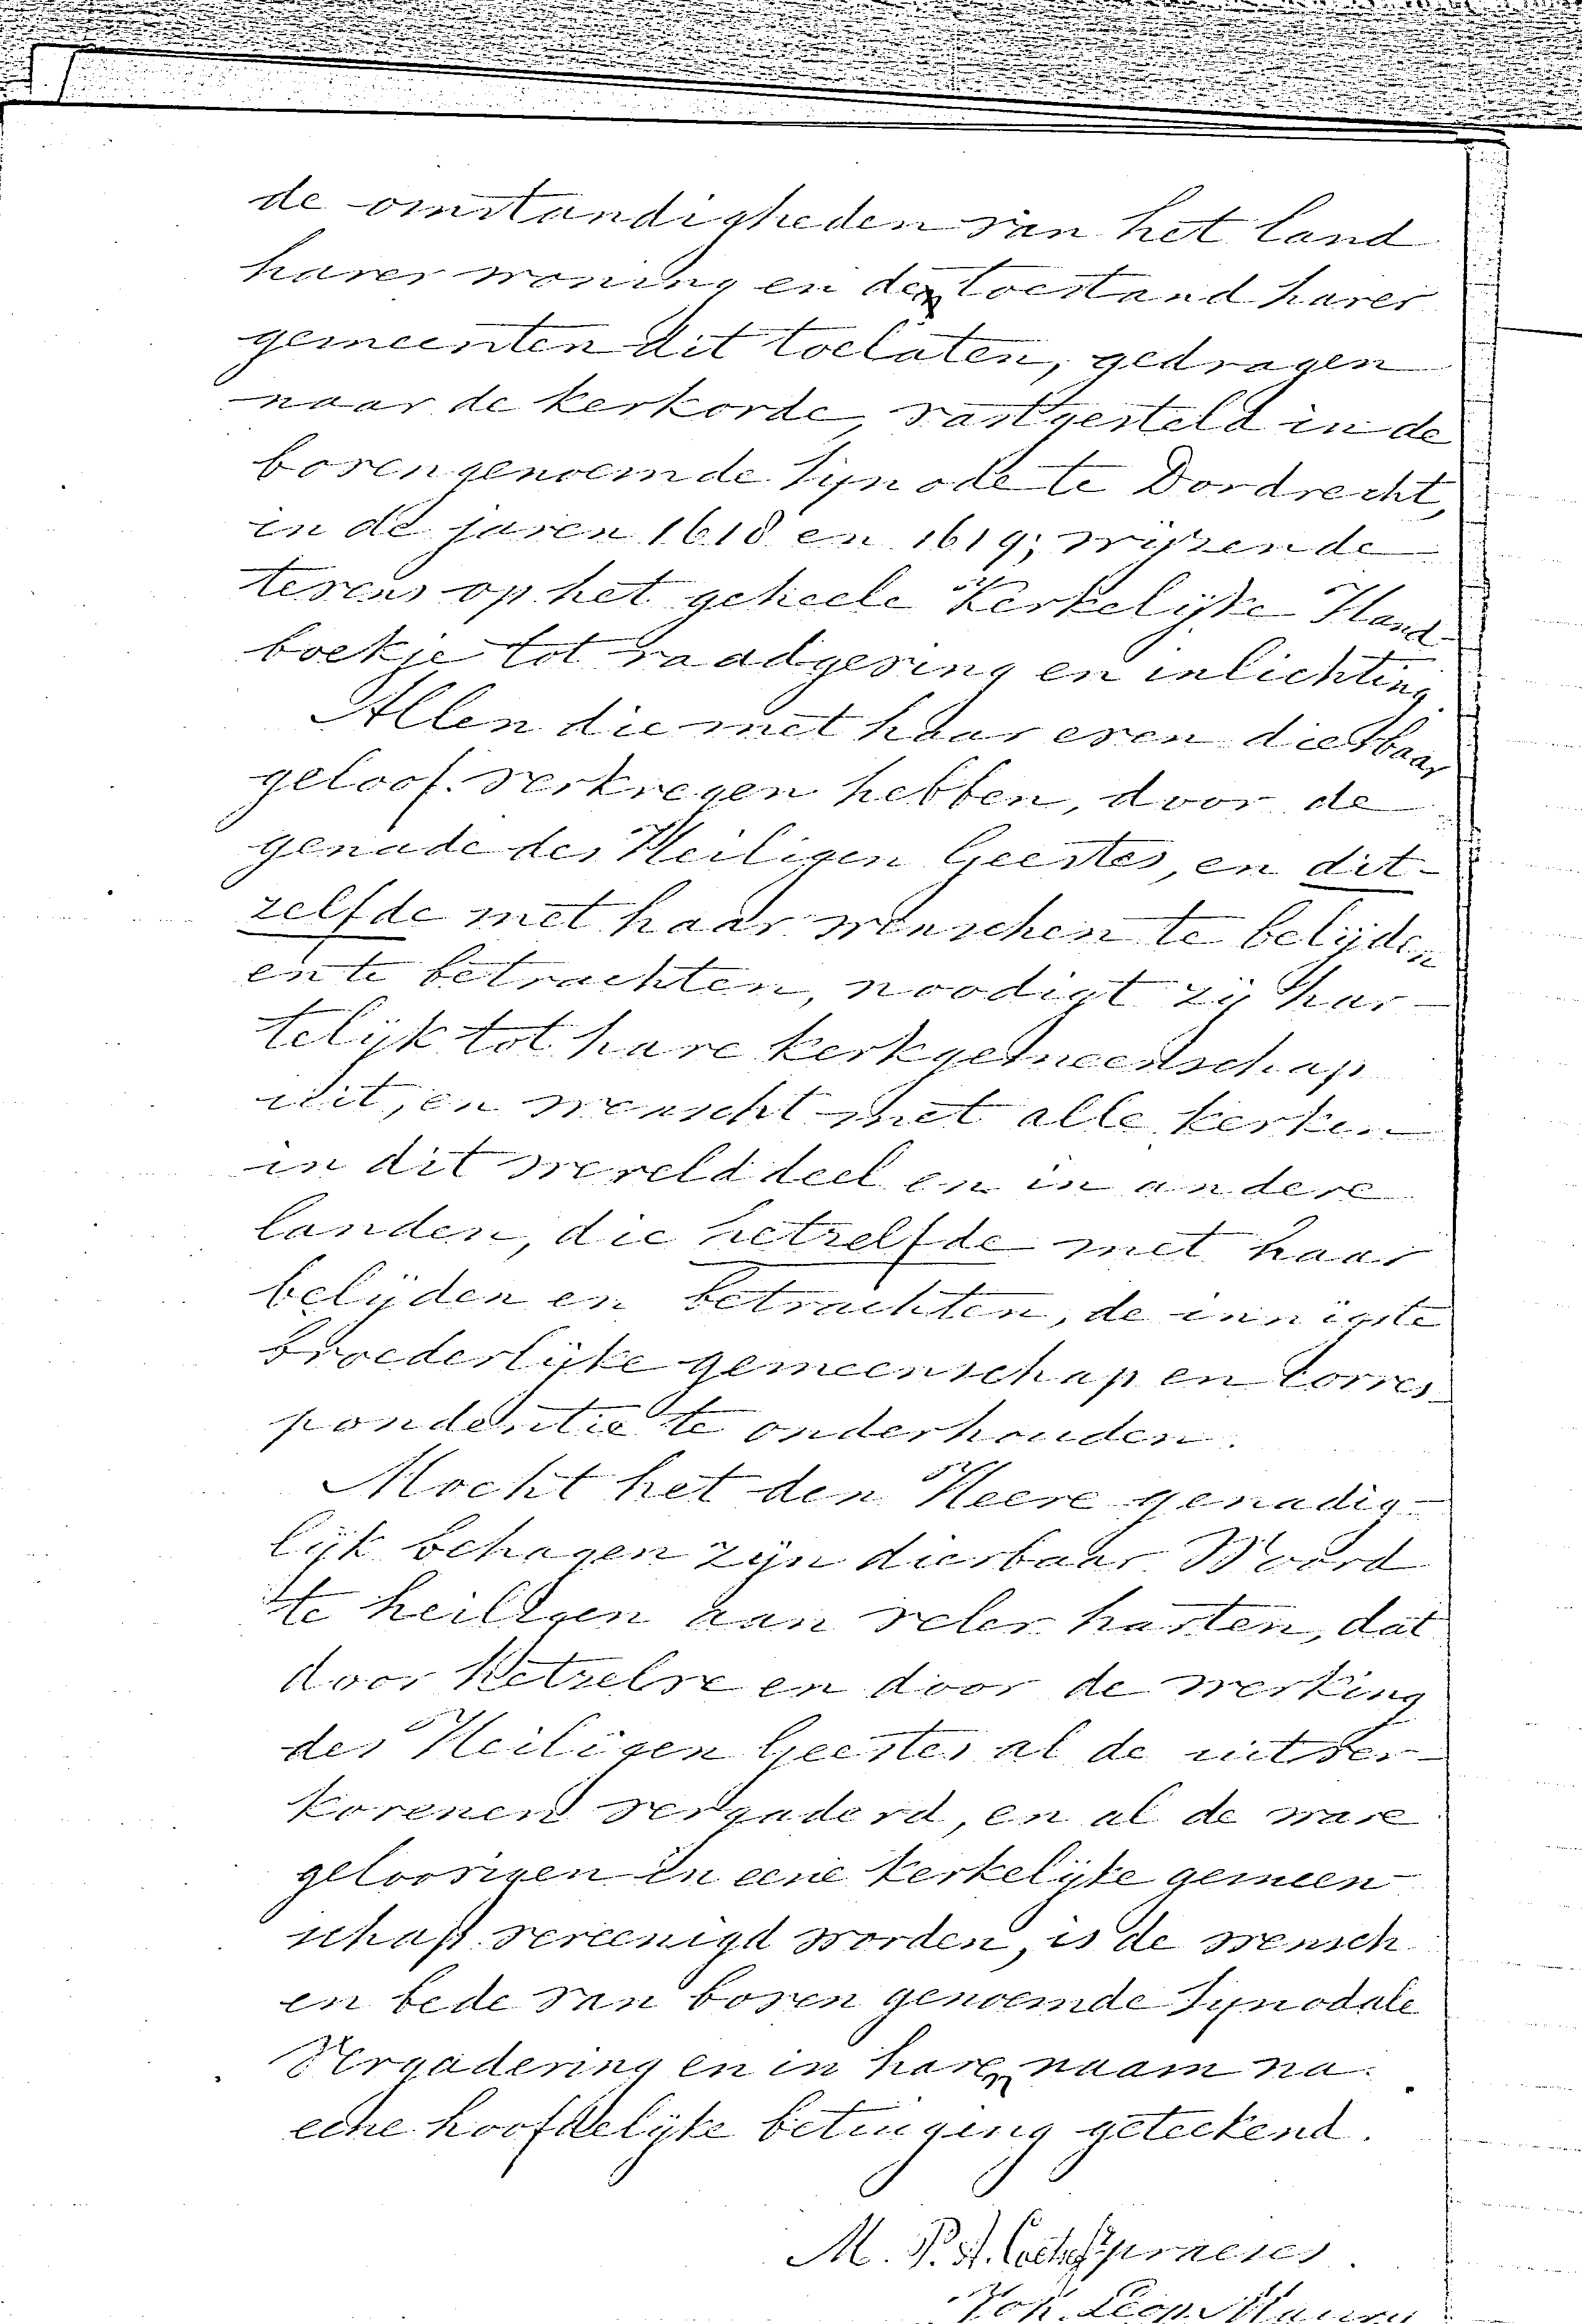 de omstandigheden van het land
harer woning en de toestand harer
gemeenten dit toelaten, gedragen
naar de kerkorde, vastgesteld in de
bovengenoemde Synode te Dordrecht,
in de jaren 1618 en 1619; wijzende
tevens op het geheele Kerkelijke Hand-
boekje tot raadgeving en inlichting.
Allen die met haar even dierbaar
geloof verkregen hebben, door de
genade des Heiligen Geestes, en dit-
zelfde met haar wenschen te belijden
en te betrachten, noodigt zij har-
telijk tot hare kerkgemeenschap
uit, en wenscht met alle kerken
in dit werelddeel en in andere
landen, die hetzelfde met haar
belijden en betrachten, de innigste
broederlijke gemeenschap en corres-
pondentie te onderhouden.
Mocht het den Heere genadig-
lijk behagen zijn dierbaar Woord
te heiligen aan veler harten, dat
door hetzelve en door de werking
des Heiligen Geestes al de uitver-
korenen vergaderd, en al de ware
geloovigen in eene kerkelijke gemeen
schap vereenigd worden, is de wensch
en bede van boven genoemde Synodale
Vergadering en in hare naam na
eene hoofdelijke betuiging geteekend.
M. P. A. praeses.
Joh. Leop.